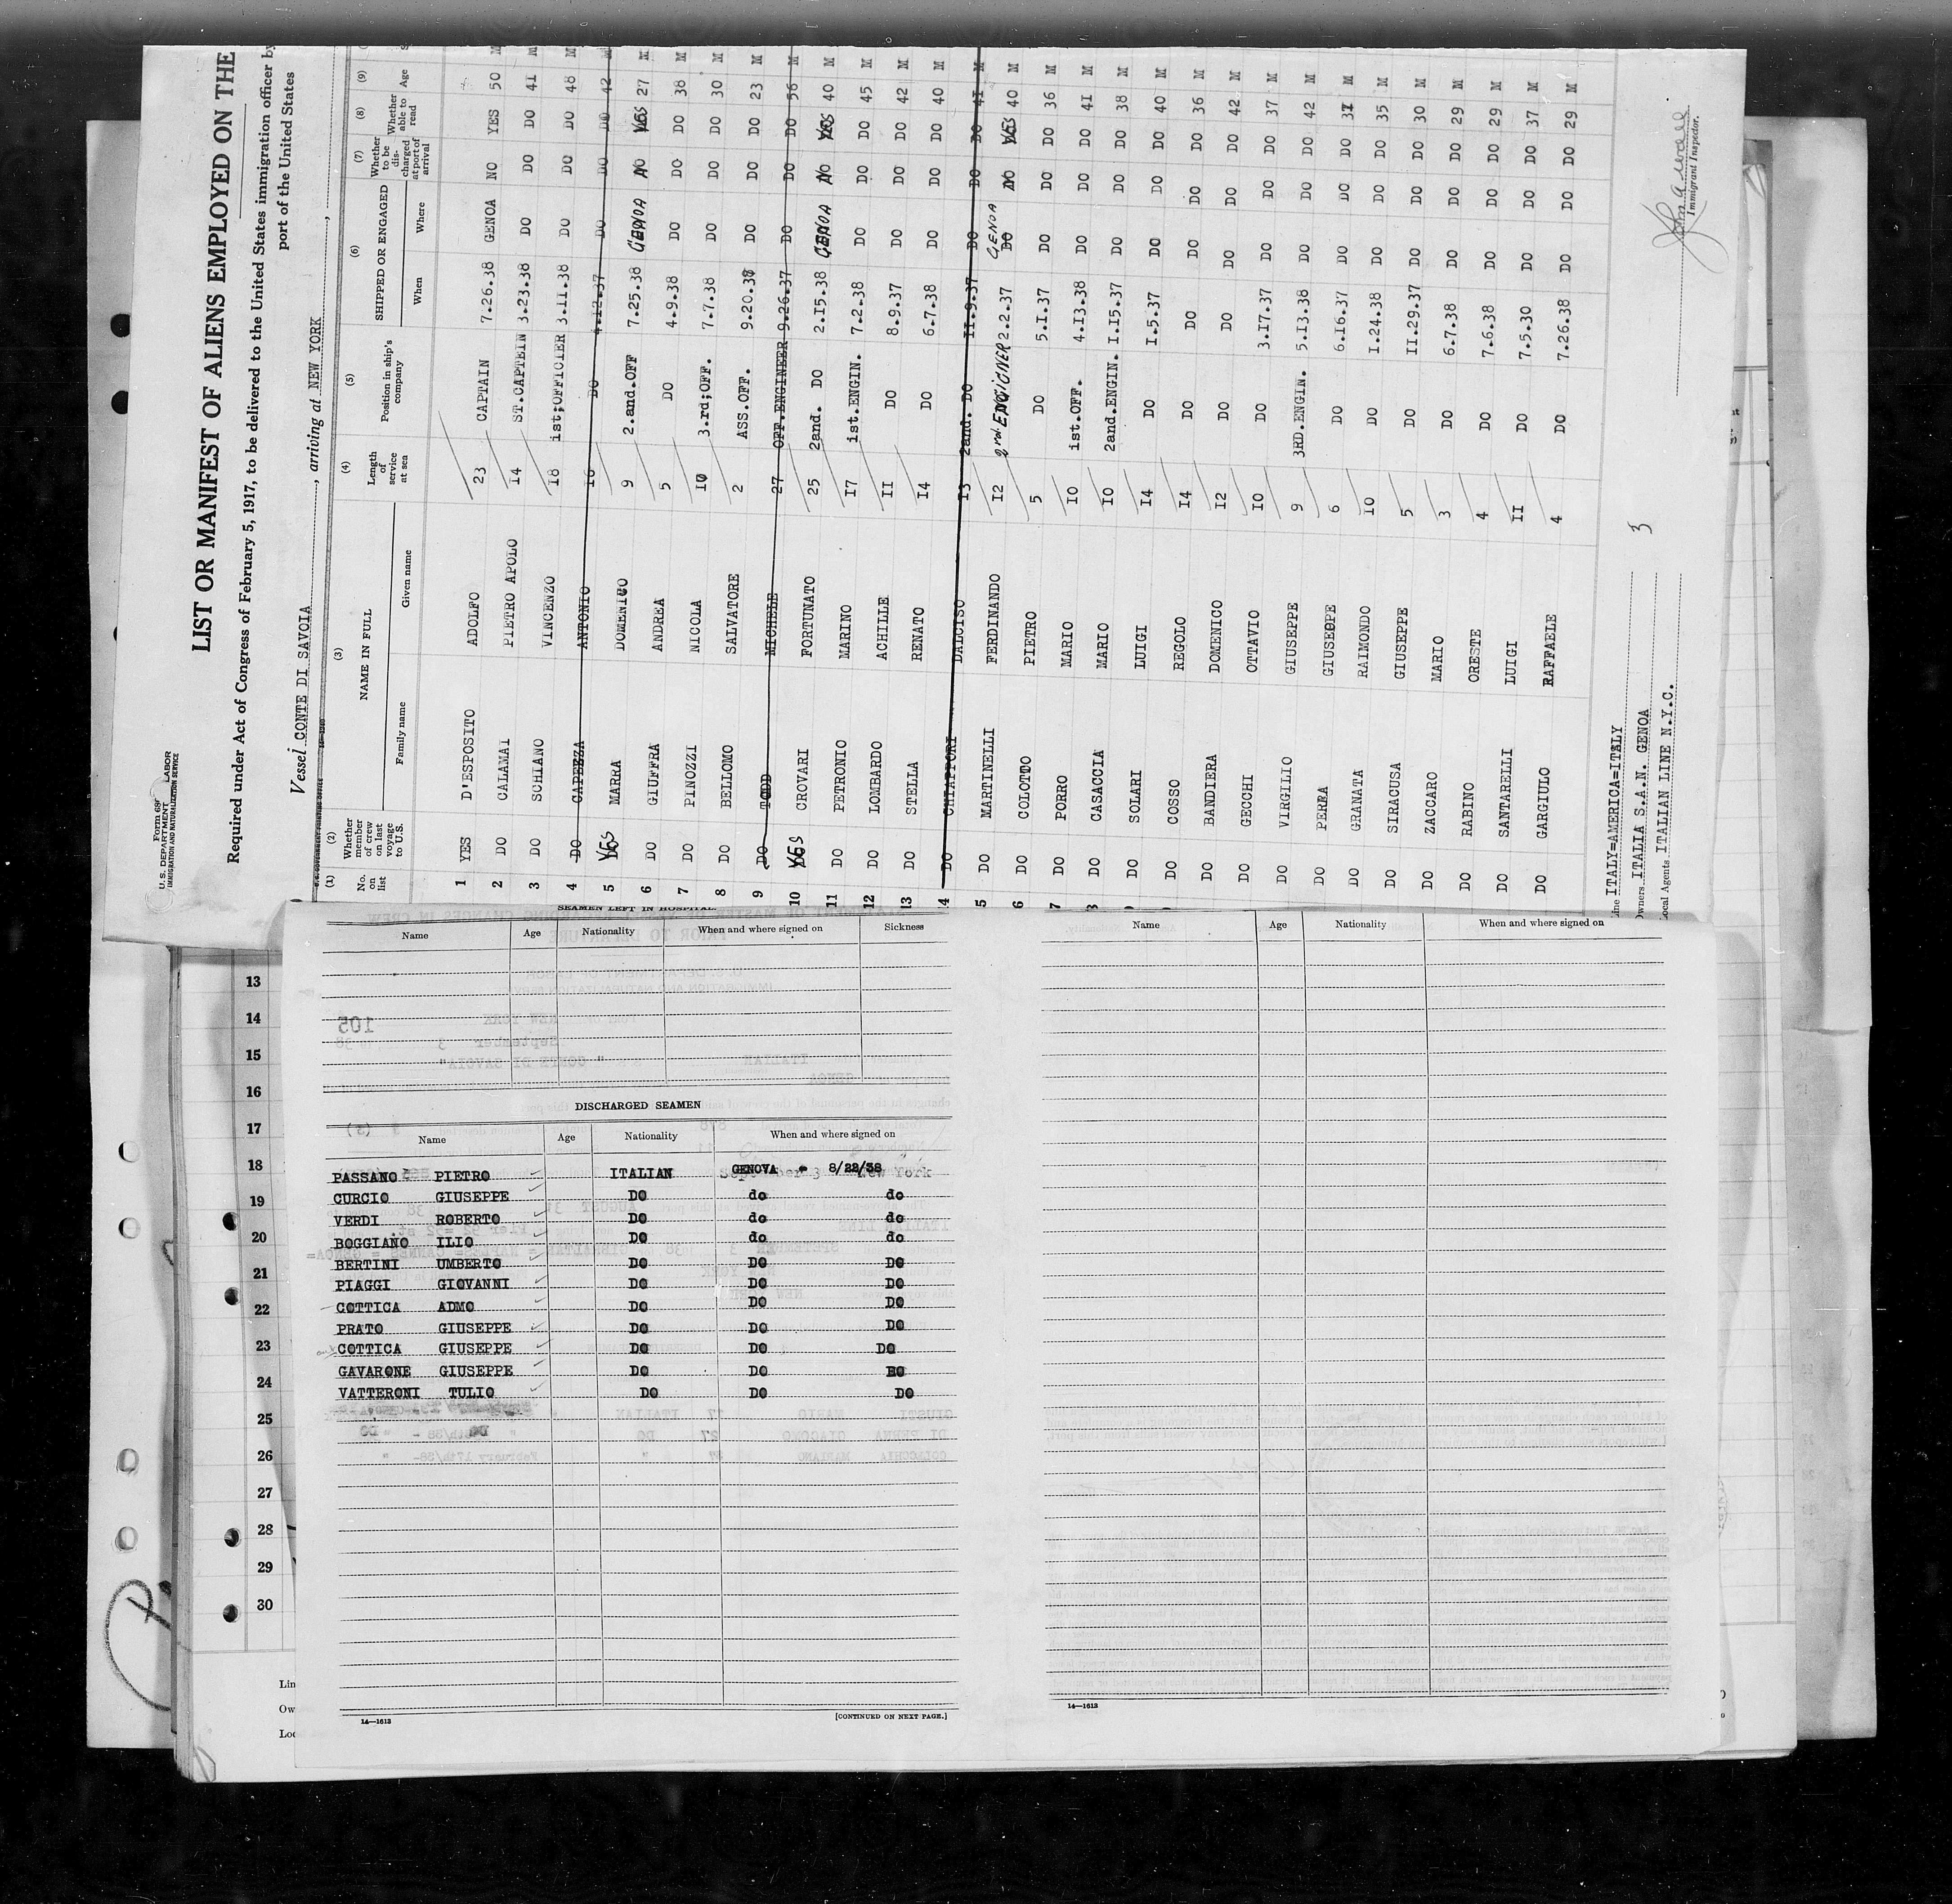 Form 689
U.S. DEPARTMENT LABOR
IMMIGRATION AND NATURALIZATION SERVICE
LIST OR MANIFEST OF ALIENS EMPLOYED ON THE
Required under Act of Congress of February 5, 1917, to be delivered to the United States immigration officer by
port of the United States
Vessel CONTE DI SAVOIA, arriving at NEW YORK,
(1) (2) (3) (4) (5) (6) (7) (8) (9)
No. on list Whether member of crew on last voyage to U.S. NAME IN FULL Length of service at sea Position in ship's company SHIPPED OR ENGAGED Whether to be discharged at port of arrival Whether able to read Age
Family name Given name When Where
1 YES D'ESPOSITO ADOLFO 23 CAPTAIN 7.26.38 GENOA NO YES 50 M
2 DO CALAMAI PIETRO APOLO 14 ST.CAPTEIN 3.23.38 DO DO DO 41 M
3 DO SCHIANO VINCENZO 18 ist;OFFICIER 3.11.38 DO DO DO 48 M
4 DO CAPEZZA ANTONIO 16 DO 4.12.37 DO DO DO 42 M
5 YES MARRA DOMENICO 9 2.and.OFF 7.25.38 GENOA NO YES 27 M
6 DO GIUFFRA ANDREA 5 DO 4.9.38 DO DO DO 38 M
7 DO PINOZZI NICOLA 10 3.rd;OFF. 7.7.38 DO DO DO 30 M
8 DO BELLOMO SALVATORE 2 ASS.OFF. 9.20.38 DO DO DO 23 M
9 DO TODD MICHELE 27 OFF.ENGINEER 9.26.37 DO DO DO 56 M
10 YES CROVARI FORTUNATO 25 2and. DO 2.15.38 GENOA NO YES 40 M
11 DO PETRONIO MARINO 17 ist.ENGIN. 7.2.38 DO DO DO 45 M
12 DO LOMBARDO ACHILLE 11 DO 8.9.37 DO DO DO 42 M
13 DO STELLA RENATO 14 DO 6.7.38 DO DO DO 40 M
4 DO CHIAPPORI DALCISO 13 2and. DO 11.9.37 DO DO DO 41 M
5 DO MARTINELLI FERDINANDO 12 2nd ENGIGNER 2.2.37 GENOA NO YES 40 M
6 DO COLOTTO PIETRO 5 DO 5.1.37 DO DO DO 36 M
7 DO PORRO MARIO 10 ist.OFF. 4.13.38 DO DO DO 41 M
8 DO CASACCIA MARIO 10 2and.ENGIN. 1.15.37 DO DO DO 38 M
DO SOLARI LUIGI 14 DO 1.5.37 DO DO DO 40 M
DO COSSO REGOLO 14 DO DO DO DO DO 36 M
DO BANDIERA DOMENICO 12 DO DO DO DO DO 42 M
DO GECCHI OTTAVIO 10 DO 3.17.37 DO DO DO 37 M
DO VIRGILIO GIUSEPPE 9 3RD.ENGIN. 5.13.38 DO DO DO 42 M
DO PERRA GIUSEPPE 6 DO 6.16.37 DO DO DO M
DO GRANATA RAIMONDO 10 DO 1.24.38 DO DO DO 35 M
DO SIRACUSA GIUSEPPE 5 DO 11.29.37 DO DO DO 30 M
DO ZACCARO MARIO 3 DO 6.7.38 DO DO DO 29 M
DO RABINO ORESTE 4 DO 7.6.38 DO DO DO 29 M
DO SANTARELLI LUIGI 11 DO 7.5.30 DO DO DO 37 M
DO GARGIULO RAFFAELE 4 DO 7.26.38 DO DO DO 29 M
ine ITALY=AMERICA=ITALY 3
Owners ITALIA S.A.N. GENOA
Local Agents ITALIAN LINE N.Y.C.
Immigrant Inspector.
SEAMEN LEFT IN HOSPITAL
Name Age Nationality When and where signed on Sickness
DISCHARGED SEAMEN
Name Age Nationality When and where signed on
PASSANO PIETRO ITALIAN GENOVA - 8/22/38
CURCIO GIUSEPPE DO do do
VERDI ROBERTO DO do do
BOGGIANO ILIO DO do do
BERTINI UMBERTO DO DO DO
PIAGGI GIOVANNI DO DO DO
COTTICA ADMO DO DO DO
PRATO GIUSEPPE DO DO DO
COTTICA GIUSEPPE DO DO DO
GAVARONE GIUSEPPE DO DO DO
VATTERONI TULIO DO DO DO
14—1613
[CONTINUED ON NEXT PAGE.]
Name Age Nationality When and where signed on
14—1613
13
14
15
16
17
18
19
20
21
22
23
24
25
26
27
28
29
30
Lin
Ow
Loc